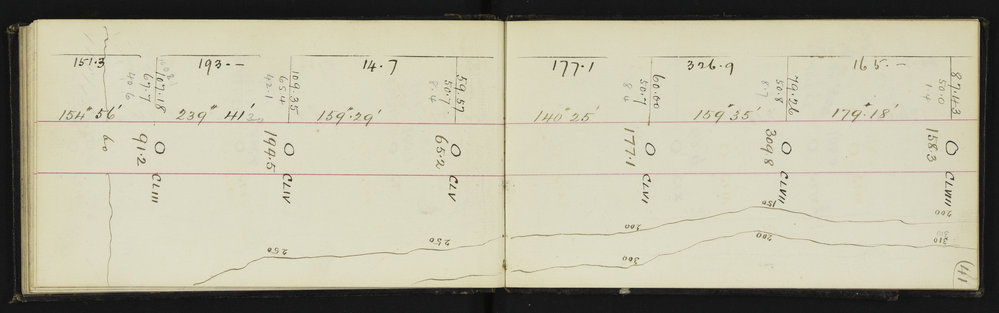 151.3 193.— 14.7 177.1 326.9 165.—
107.18
67.7
40.6
109.35
65.4
42.1
59.57
50.7
8.4
60.00
50.7
8.4
79.26
50.8
87
87.43
50.0
1.4
154° 56' 239° 41' 20 159° 29' 140° 25' 159° 35' 179° 18'
60
O CLIII
91.2
O CLIV
199.5
O CLV
65.2
O CLVI
177.1
O CLVII
309.8
O CLVIII
158.3
250 250 200 150 200
300 200 310
310
41